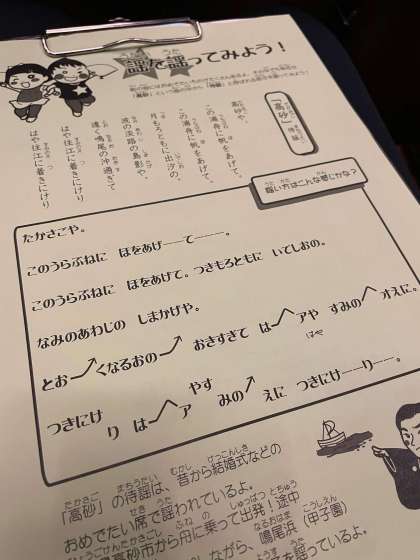 謡を謡ってみよう！
「高砂」
高砂や、
この浦舟に帆をあげて、
この浦舟に帆をあげて、
月もろともに出汐の、
波の淡路の島影や、
遠く鳴尾の沖過ぎて
はや住江に着きにけり
はや住江に着きにけり
謡い方はこんな感じかな？
たかさごや。
このうらぶねに ほをあげーて――。
このうらぶねに ほをあげて。つきもろともに いてしおの。
なみのあわじの しまかげや。
とおくなるおの おきすぎて はアや すみのオえに。
はや
つきにけり はア やす みのえに つきにけーーりー。
「高砂」の待謡は、昔から結婚式などの
おめでたい席で謡われているよ。
から舟に乗って出発！途中
ながら、鳴尾浜（甲子園）
謡っているよ。